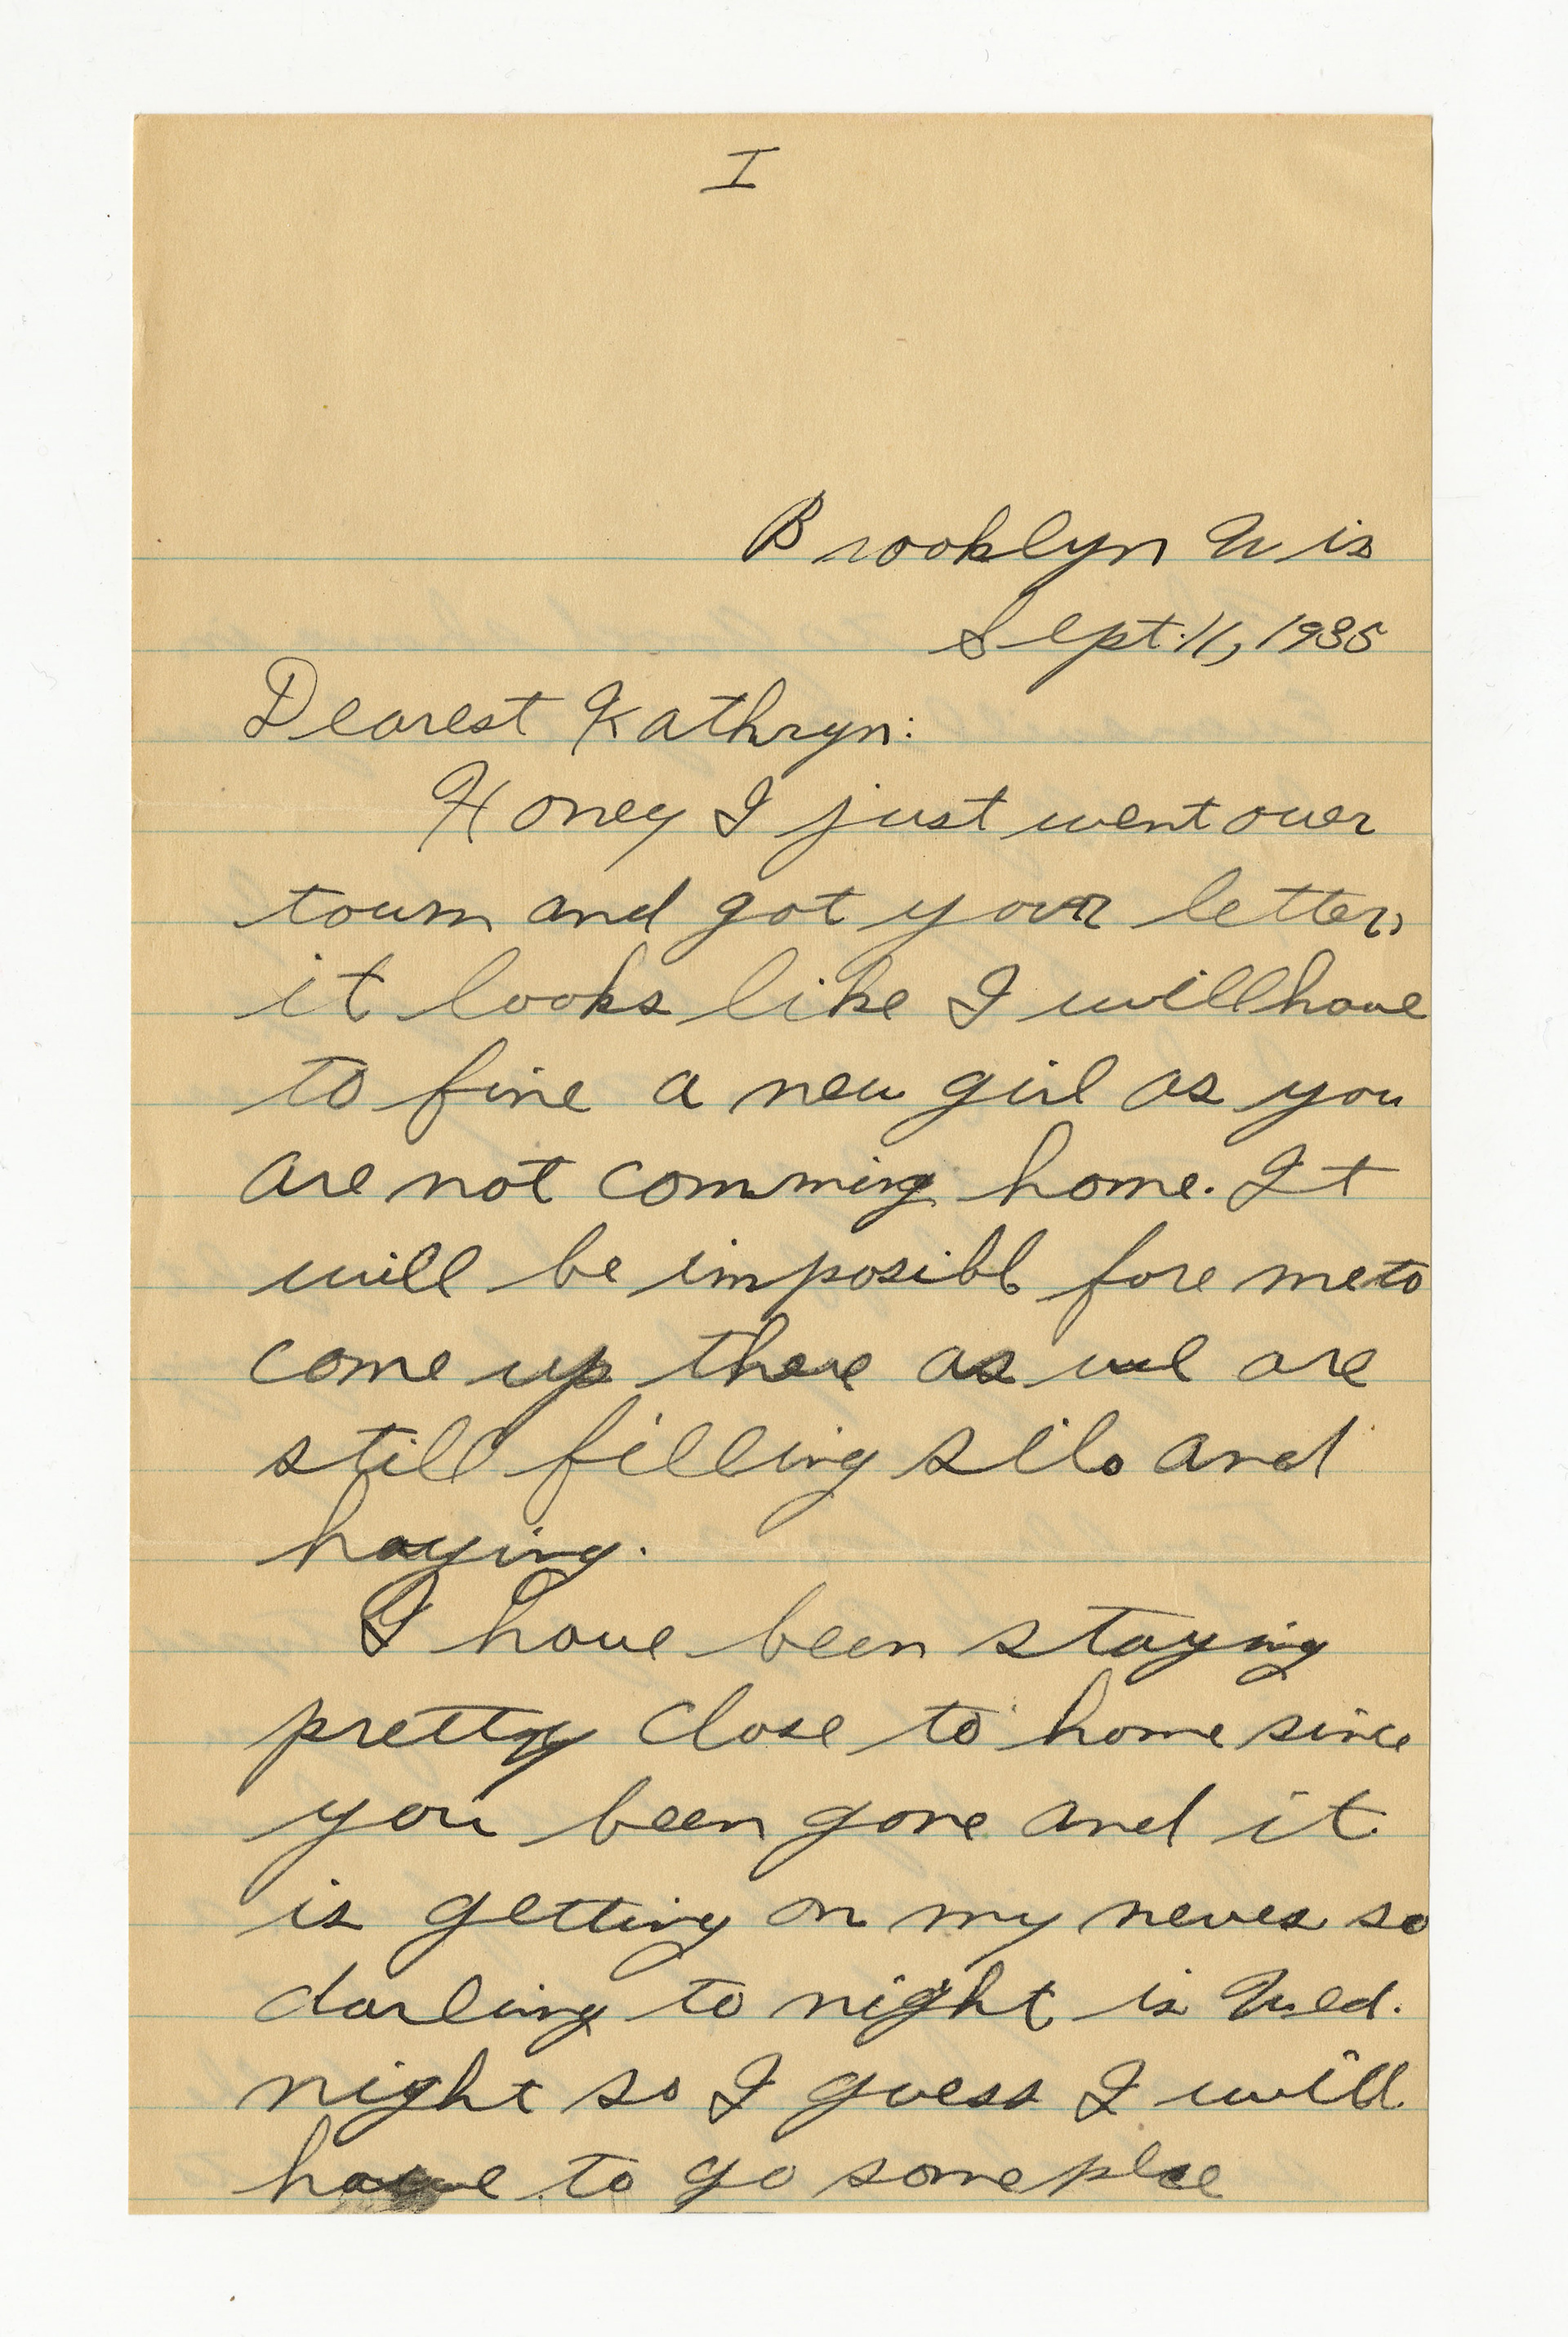 I
Brooklyn Wis
Sept. 11, 1935
Dearest Kathryn:
Honey I just went over
town and got your letter,
it looks like I will have
to fine a new girl as you
are not comming home. It
will be imposibl fore me to
come up there as we are
still filling silo and
haying.
I have been staying
pretty close to home since
you been gone and it
is getting on my neves so
darling to night is Wed.
night so I guess I will
have to go some plce